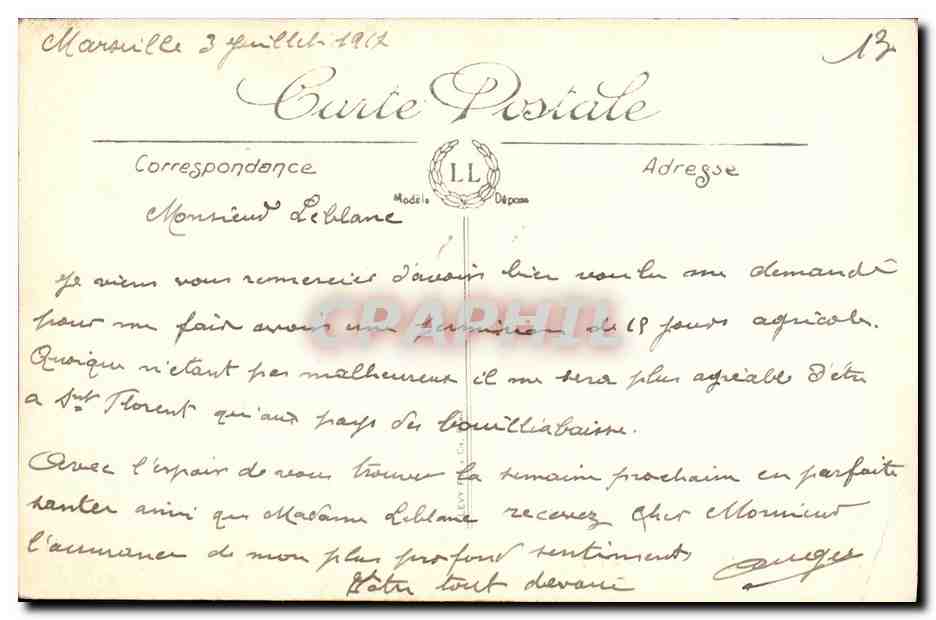 Marseille 3 Juillet 1917
13
Carte Postale
Correspondance
LL
Adresse
Modèle Déposé
Monsieur Leblanc
Je viens vous remercier d'avoir bien voulu me demandé
pour me fair avoir une permission de 15 jours agricole.
Quoique n'étant pas malheureux il me sera plus agréable d'être
a Snt Florent qu'aux pays des bouilliabaisse.
Avec l'espoir de vous trouver la semain prochain en parfaite
santer ainsi que Madame Leblanc recevez Cher Monsieur
l'assurance de mon plus profond sentiments
Vôtre tout devoué
Auger
CPAPHIL